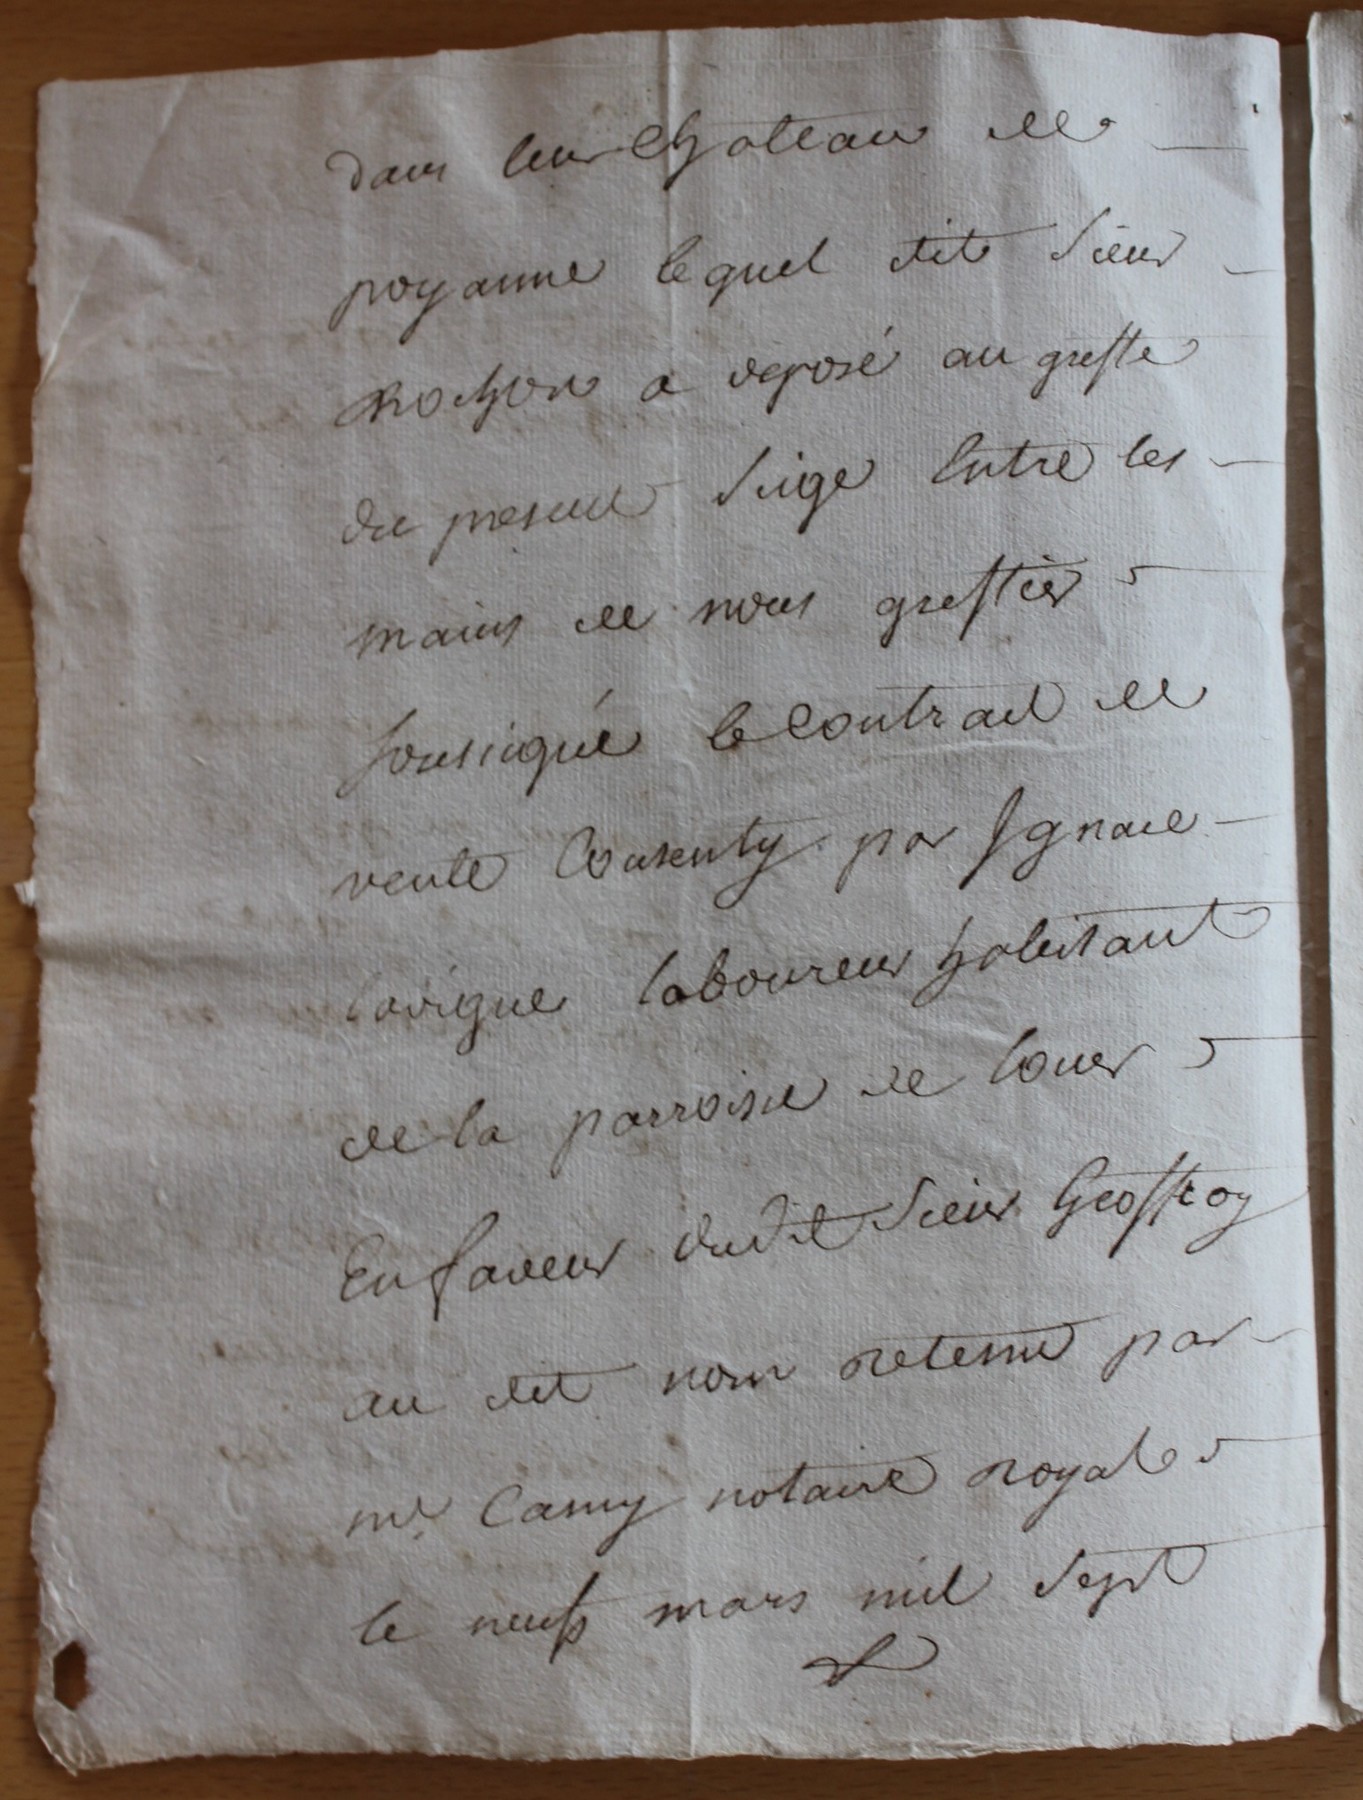 dans leur chateau de
poyanne lequel dit sieur
Rochon a deposé au greffe
du present siege entre les
mains de nous greffier
soussigné le contract de
vente consenty par Ignace
lavigne laboureur habitant
de la parroisse de louer
en faveur dudit sieur Geoffroy
au dit nom retenu par
me. Camy notaire royal
le neuf mars mil sept